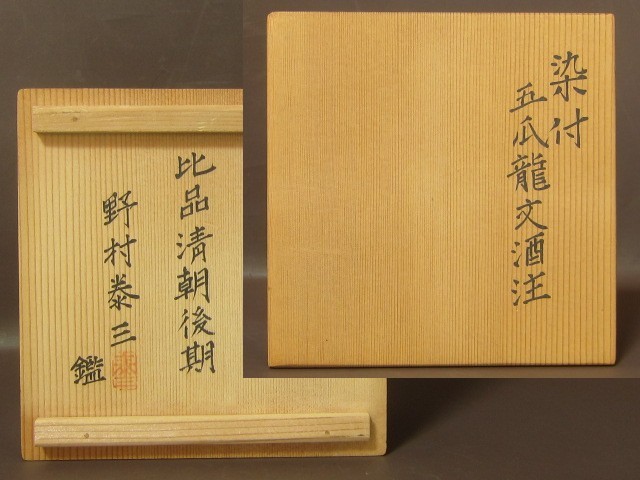 染付
五爪龍文酒注
比品清朝後期
野村泰三
鑑